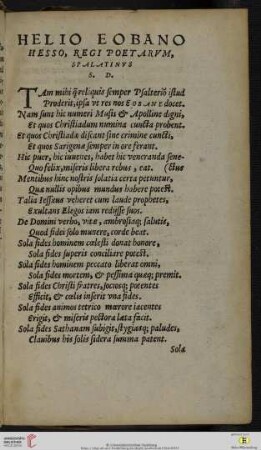 HELIO EOBANO
HESSO, REGI POETARVM,
SPALATINVS
S. D.
TAm mihi q̃ reliquis semper Psalteriõ istud
Proderit, ipsa vt res nos EOBANE docet.
Nam sunt hic numeri Musis & Apolline digni,
Et quos Christiadum numina cuncta probent.
Et quos Christiadæ discant sine crimine cuncti,
Et quos Sarigenæ semper in ore ferant.
Hic puer, hic iuuenes, habet hic veneranda sene-
Quo felix, miseris libera rebus, eat. (ctus
Mentibus hinc nostris solatia certa petuntur,
Quæ nullis opibus mundus habere potest.
Talia Iesseus veheret cum laude prophetes,
Exultans Elegos iam redijsse suos.
De Domini verbo, vitæ, ambrosiaq; salutis,
Quod fidei solo munere, corde beat.
Sola fides hominem cœlesti donat honore,
Sola fides superis conciliare potest.
Sola fides hominem peccato liberat omni,
Sola fides mortem, & pessima quæq; premit.
Sola fides Christi fratres, sociosq; potentes
Efficit, & cœlis inserit vna fides.
Sola fides animos tetrico mœrore iacentes
Erigit, & miseris pectora læta facit.
Sola fides Sathanam subigit, stygiasq; paludes,
Clauibus his solis sidera summa patent.
Sola